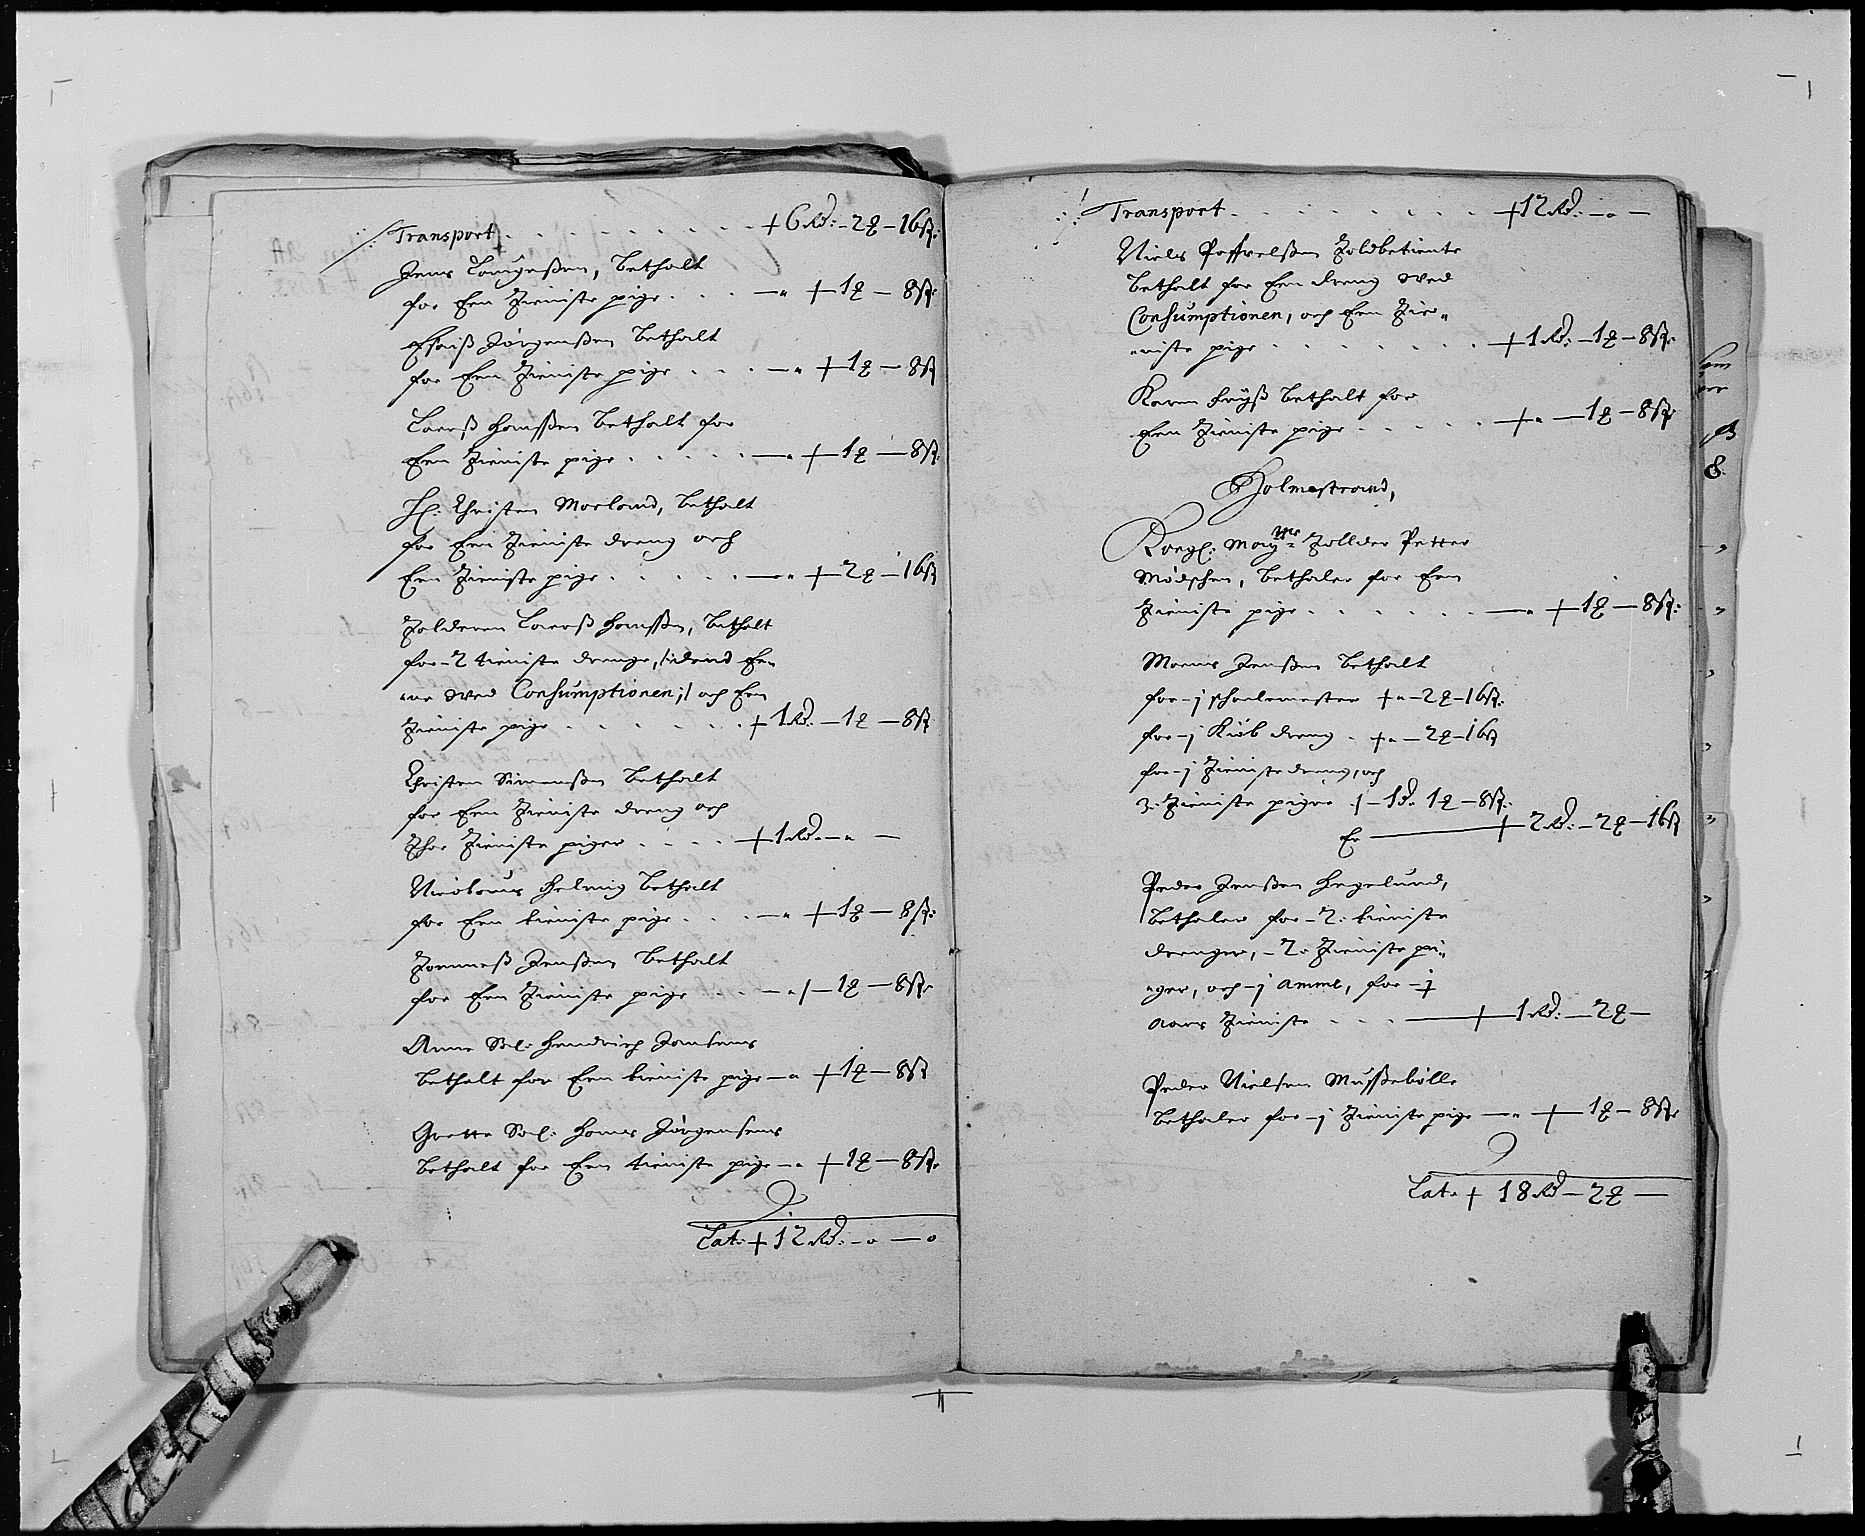 Transport . . . . . . . . + 6 Rd: - 2 ꝗ - 16 ß:
Jens Laugeßen, Bethalt
for Een Tieniste pige . . . — " + 1 ꝗ — 8 ß:
Jörgenßen Bethalt
for Een Tieniste pige . . . — " + 1 ꝗ — 8 ß
Laerß Hanßen Bethalt for
Een Tieniste pige . . . . . — " + 1 ꝗ — 8 ß:
Hr: Christen Morland, Bethalt
for Een Tieniste dreng och
Een Tieniste pige . . . . . — " + 2 ꝗ — 16 ß
Tolderen Laerß Hanßen, Bethalt
for - 2 tieniste drenge, Ee-
ved Consumptionen;/ och Een
Tieniste pige . . . . . . + 1 Rd: — 1 ꝗ — 8 ß
Christen Simenßen Bethalt
for Een Tieniste dreng och
Thoe Tieniste piger . . . . + 1 Rd: — " —
Nicolaus Helmig Bethalt
for Een tieniste pige . . . — " + 1 ꝗ — 8 ß:
Jenßen Bethalt
for Een Tieniste pige . . . — " / — 1 ꝗ — 8 ß:
Anne Sal: Hendrich Jansens
Bethalt for Een tieniste pige — " + 1 ꝗ — 8 ß
Grette Sal: Hans Jörgensens
Bethalt for Een tieniste pige — " + 1 ꝗ — 8 ß:
Lat: + 12 Rd: — o — o
Transport . . . . . . . + 12 Rd: — " —
Niels Poffvelßen Toldbetiente
Bethalt for Een dreng ved
Consumptionen, och Een Tie-
niste pige . . . . . . . + 1 Rd: — 1 ꝗ — 8 ß:
Karen Friiß Bethalt for
Een Tieniste pige . . . . . + " — 1 ꝗ — 8 ß:
Holmestrand,
Kongl: May: Tollder Petter
Mödschen, Bethaler for Een
Tieniste pige . . . . . . — " + 1 ꝗ — 8 ß:
Jenßen Bethalt
for - j schoelemester + " — 2 ꝗ — 16 ß:
for - j Kiöb dreng . + " — 2 ꝗ — 16 ß
for - j Tieniste dreng, och
3. Tieniste piger / — 1 d: 1 ꝗ — 8 ß:
Er — + 2 Rd: — 2 ꝗ — 16 ß
Peder Jenßen Hegelund,
Bethaler for - 2. tieniste
drenger, - 2. Tieniste pi-
ger, och - j amme, for - j
aars Tieniste . . . — + 1 Rd: — 2 ꝗ —
Peder Nielsen Mußebölle
Bethaler for - j Tieniste pige — " + 1 ꝗ — 8 ß:
Lat: + 18 Rd — 2 ꝗ —